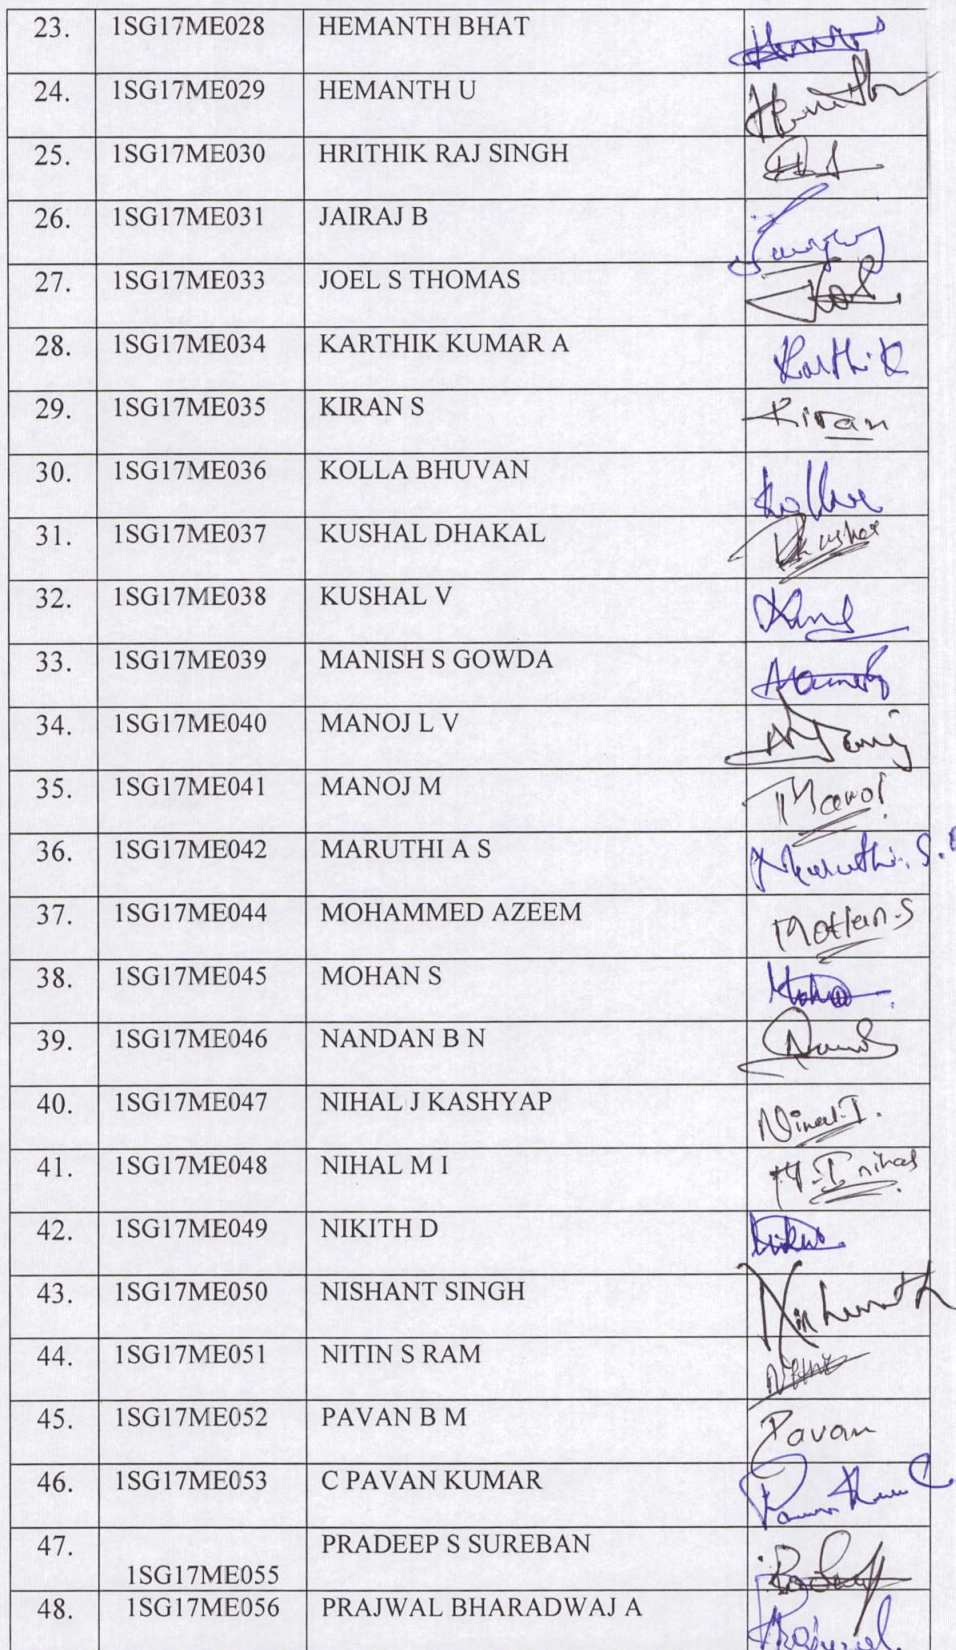 23. 1SG17ME028 HEMANTH BHAT
24. 1SG17ME029 HEMANTH U
25. 1SG17ME030 HRITHIK RAJ SINGH
26. 1SG17ME031 JAIRAJ B
27. 1SG17ME033 JOEL S THOMAS
28. 1SG17ME034 KARTHIK KUMAR A Karthik
29. 1SG17ME035 KIRAN S Kiran
30. 1SG17ME036 KOLLA BHUVAN
31. 1SG17ME037 KUSHAL DHAKAL
32. 1SG17ME038 KUSHAL V
33. 1SG17ME039 MANISH S GOWDA
34. 1SG17ME040 MANOJ L V
35. 1SG17ME041 MANOJ M Manoj
36. 1SG17ME042 MARUTHI A S
37. 1SG17ME044 MOHAMMED AZEEM
38. 1SG17ME045 MOHAN S
39. 1SG17ME046 NANDAN B N
40. 1SG17ME047 NIHAL J KASHYAP
41. 1SG17ME048 NIHAL M I M.I nihal
42. 1SG17ME049 NIKITH D
43. 1SG17ME050 NISHANT SINGH
44. 1SG17ME051 NITIN S RAM
45. 1SG17ME052 PAVAN B M Pavan
46. 1SG17ME053 C PAVAN KUMAR
47. PRADEEP S SUREBAN
1SG17ME055
48. 1SG17ME056 PRAJWAL BHARADWAJ A